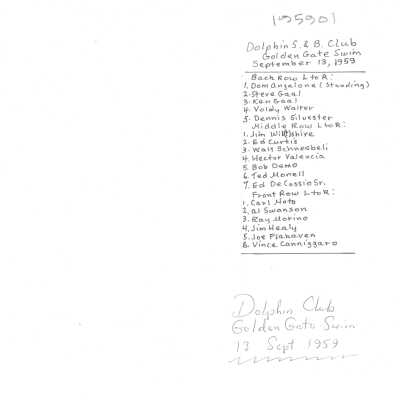 195901
Dolphin S. & B. Club
Golden Gate Swim
September 13, 1959
Back Row L to R:
1. Dom Anjelone (Standing)
2. Steve Gaal
3. Ken Gaal
4. Voldy Walter
5. Dennis Silvester
Middle Row L to R:
1. Jim Wiltshire
2. Ed Curtis
3. Walt Schneebeli
4. Hector Valencia
5. Bob Demo
6. Ted Monell
7. Ed DeCossio Sr.
Front Row L to R:
1. Carl Noto
2. Al Swanson
3. Ray Morino
4. Jim Healy
5. Joe
6. Vince Cannizzaro
Dolphin Club
Golden Gate Swim
13 Sept 1959